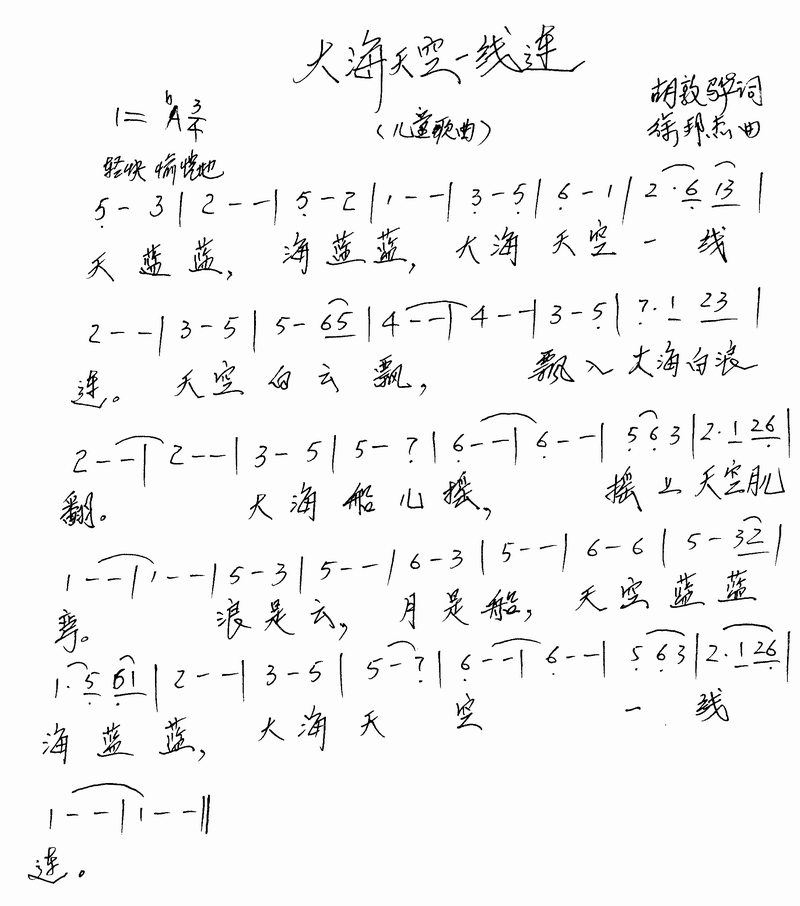 大海天空一线连
1=ᵇA 3/4
（儿童歌曲）
胡敦骅词
徐邦杰曲
轻快 愉悦地
5̣ - 3 | 2 - - | 5̣ - 2 | 1 - - | 3̣ - 5̣ | 6̣ - 1 | 2 · 6̣ 13 |
天 蓝 蓝， 海 蓝 蓝， 大 海 天 空 一 线
2 - - | 3 - 5 | 5 - 65 | 4 - - | 4 - - | 3 - 5̣ | 7̣ · 1 23 |
连。 天 空 白 云 飘， 飘 入 大海白浪
2 - - | 2 - - | 3 - 5 | 5 - 7̣ | 6̣ - - | 6̣ - - | 5̣ 6̣ 3 | 2 · 1 26̣ |
翻。 大 海 船 儿 摇， 摇 上 天空月儿
1 - - | 1 - - | 5 - 3 | 5 - - | 6 - 3 | 5 - - | 6 - 6 | 5 - 32 |
弯。 浪 是 云， 月 是 船， 天 空 蓝 蓝
1 · 5̣ 6̣1 | 2 - - | 3 - 5 | 5 - 7̣ | 6̣ - - | 6̣ - - | 5̣ 6̣ 3 | 2 · 1 26̣ |
海 蓝 蓝， 大 海 天 空 一 线
1 - - | 1 - - ||
连。